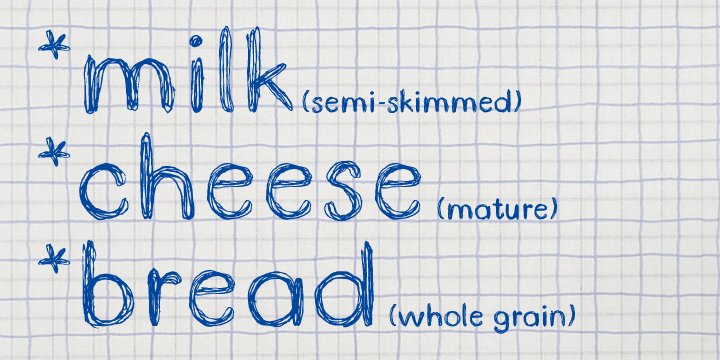 *milk (semi-skimmed)
*cheese (mature)
*bread (whole grain)